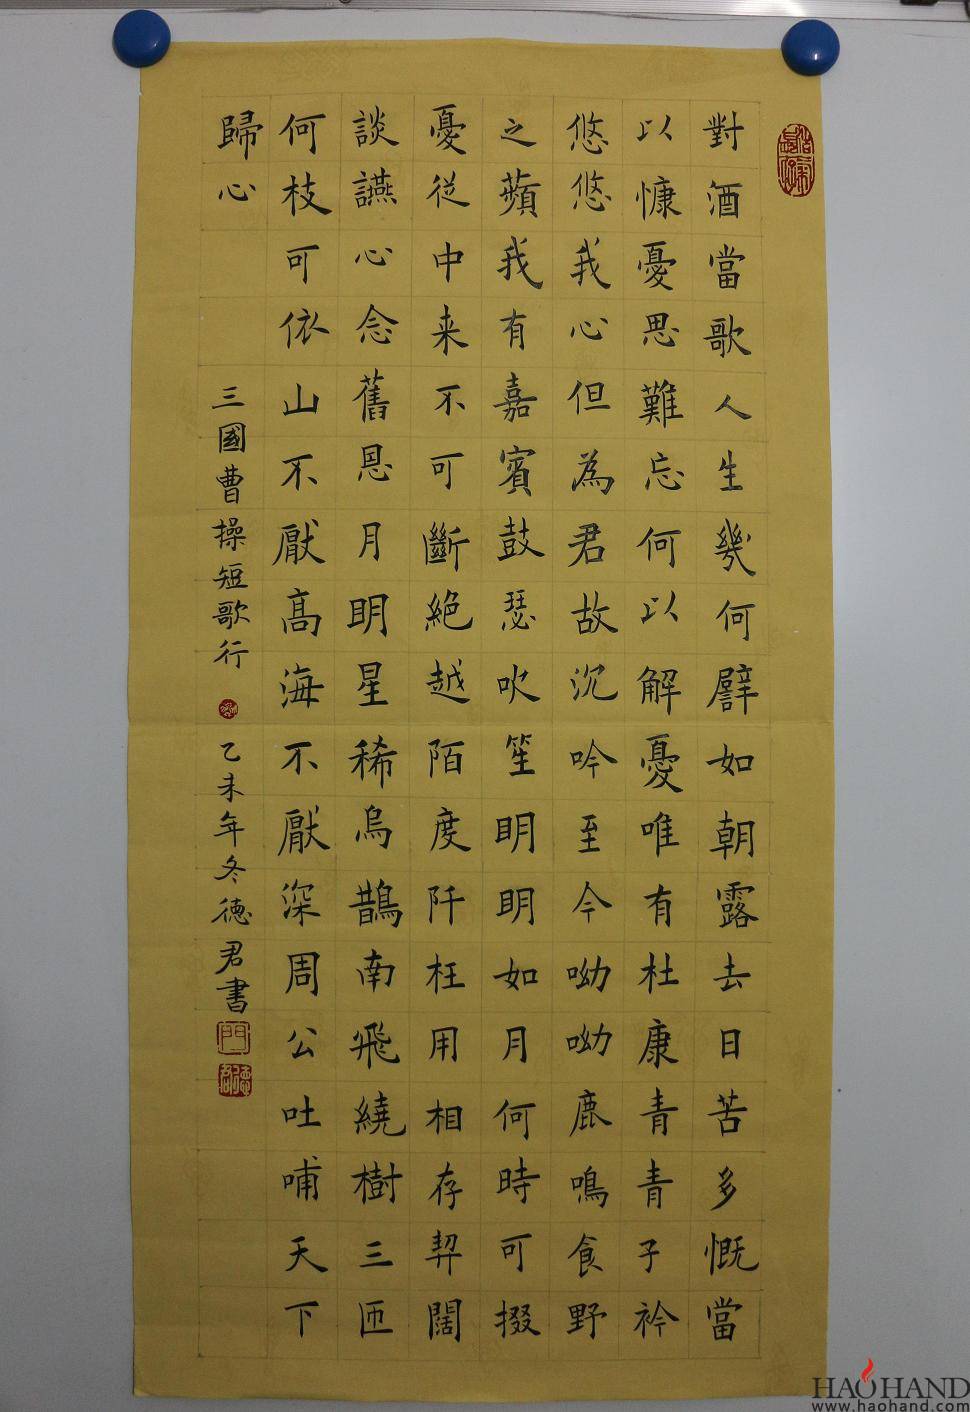 對酒當歌人生幾何譬如朝露去日苦多慨當
以慷憂思難忘何以解憂唯有杜康青青子衿
悠悠我心但為君故沉吟至今呦呦鹿鳴食野
之蘋我有嘉賓鼓瑟吹笙明明如月何時可掇
憂從中来不可斷絕越陌度阡枉用相存契闊
談讌心念舊恩月明星稀烏鵲南飛繞樹三匝
何枝可依山不厭高海不厭深周公吐哺天下
歸心
三國曹操短歌行
乙未年冬德君書
HAOHAND
www.haohand.com